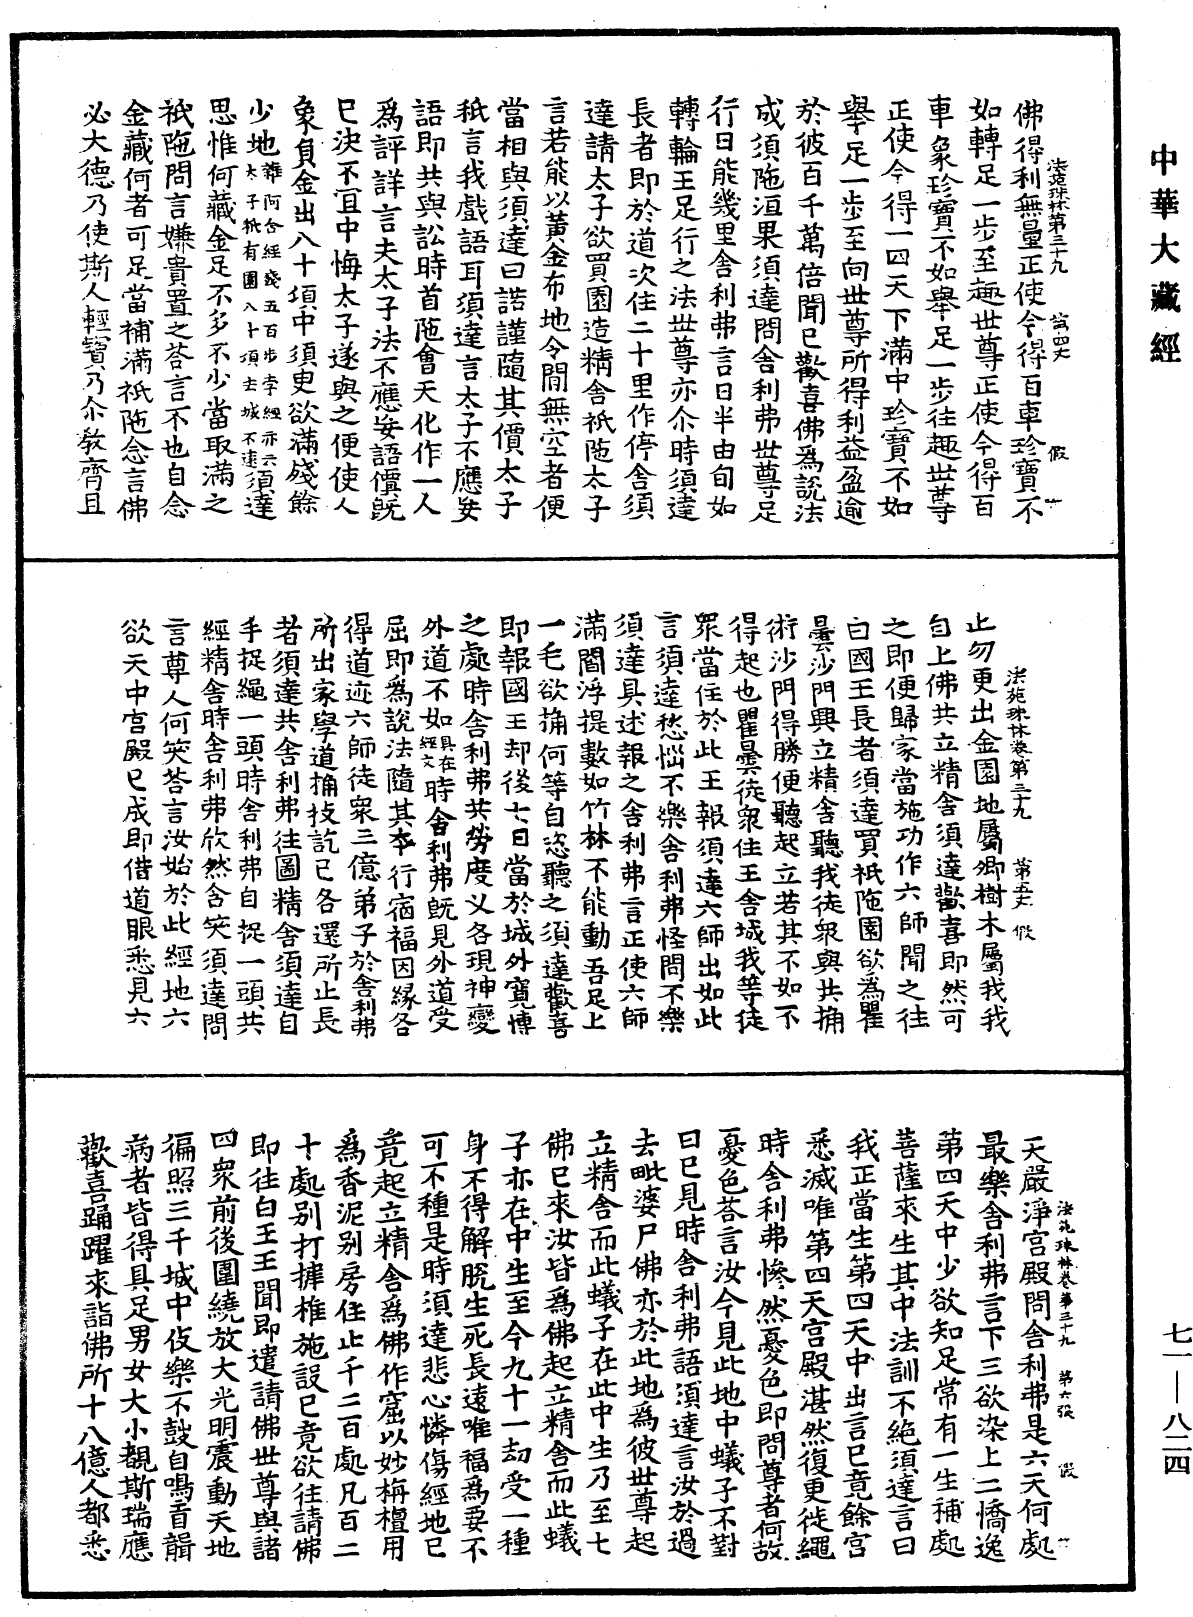 中華大藏經
法苑珠林第三十九　第四丈　假
佛得利無量正使今得百車珍寶不
如轉足一步至趣世尊正使今得百
車象珍寶不如舉足一步往趣世尊
正使今得一四天下滿中珍寶不如
舉足一步至向世尊所得利益盈逾
於彼百千萬倍聞已歡喜佛爲說法
成須陁洹果須達問舍利弗世尊足
行日能幾里舍利弗言日半由旬如
轉輪王足行之法世尊亦尒時須達
長者即於道次住二十里作停舍須
達請太子欲買園造精舍祇陁太子
言若能以黃金布地令間無空者便
當相與須達曰諾謹隨其價太子
祇言我戲語耳須達言太子不應妄
語即共與訟時首陁會天化作一人
爲評詳言夫太子法不應妄語價旣
已決不宜中悔太子遂與之便使人
象負金出八十頃中須臾欲滿殘餘
少地雜阿含經殘五百步孛經亦云太子祇有園八十頃去城不遠須達
思惟何藏金足不多不少當取滿之
祇陁問言嫌貴置之荅言不也自念
金藏何者可足當補滿祇陁念言佛
必大德乃使斯人輕寶乃尒教齊且
法苑珠林卷第三十九　第五丈　假
止勿更出金園地屬卿樹木屬我我
自上佛共立精舍須達歡喜即然可
之即便歸家當施功作六師聞之往
白國王長者須達買祇陁園欲爲瞿
曇沙門興立精舍聽我徒衆與共捔
術沙門得勝便聽起立若其不如不
得起也瞿曇徒衆住王舍城我等徒
衆當住於此王報須達六師出如此
言須達愁惱不樂舍利弗怪問不樂
須達具述報之舍利弗言正使六師
滿閻浮提數如竹林不能動吾足上
一毛欲捔何等自恣聽之須達歡喜
即報國王却後七日當於城外寬博
之處時舍利弗共勞度乂各現神變
外道不如具在經文時舍利弗旣見外道受
屈即爲說法隨其本行宿福因緣各
得道迹六師徒衆三億弟子於舍利弗
所出家學道捔技訖已各還所止長
者須達共舍利弗往圖精舍須達自
手捉繩一頭時舍利弗自捉一頭共
經精舍時舍利弗欣然含笑須達問
言尊人何笑荅言汝始於此經地六
欲天中宮殿已成即借道眼悉見六
法苑珠林卷第三十九　第六張　假
天嚴淨宮殿問舍利弗是六天何處
最樂舍利弗言下三欲染上二憍逸
第四天中少欲知足常有一生補處
菩薩來生其中法訓不絕須達言曰
我正當生第四天中出言已竟餘宮
悉滅唯第四天宮殿湛然復更徙繩
時舍利弗慘然憂色即問尊者何故
憂色荅言汝今見此地中蟻子不對
曰已見時舍利弗語須達言汝於過
去毗婆尸佛亦於此地爲彼世尊起
立精舍而此蟻子在此中生乃至七
佛已來汝皆爲佛起立精舍而此蟻
子亦在中生至今九十一劫受一種
身不得解脫生死長遠唯福爲要不
可不種是時須達悲心憐傷經地已
竟起立精舍爲佛作窟以妙栴檀用
爲香泥別房住止千二百處凡百二
十處別打揵椎施設已竟欲往請佛
即往白王王聞即遣請佛世尊與諸
四衆前後圍繞放大光明震動天地
徧照三千城中伎樂不鼓自鳴盲聾
病者皆得具足男女大小覩斯瑞應
歡喜踊躍來詣佛所十八億人都悉
七一—八二四